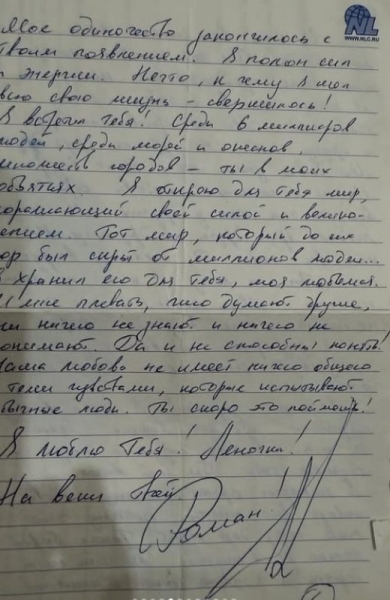 NL
WWW.NLC.RU
Мое одиночество закончилось с
твоим появлением. Я полон сил
и энергии. Нечто, к чему я шел
всю свою жизнь - свершилось!
Я встретил тебя! Среди 6 миллиаров
людей, среди морей и океанов,
множеств городов - ты в моих
объятиях. Я открою для тебя мир,
поражающий своей силой и велико-
лепием. Тот мир, который до сих
пор был скрыт от миллионов людей...
Я хранил его для тебя, моя любимая.
И мне плевать, что думают другие,
они ничего не знают и ничего не
понимают. Да и не способны понять!
Наша любовь не имеет ничего общего
с теми чувствами, которые испытывают
обычные люди. Ты скоро это поймешь!
Я люблю Тебя! Леночка!
На веки твой
Роман!